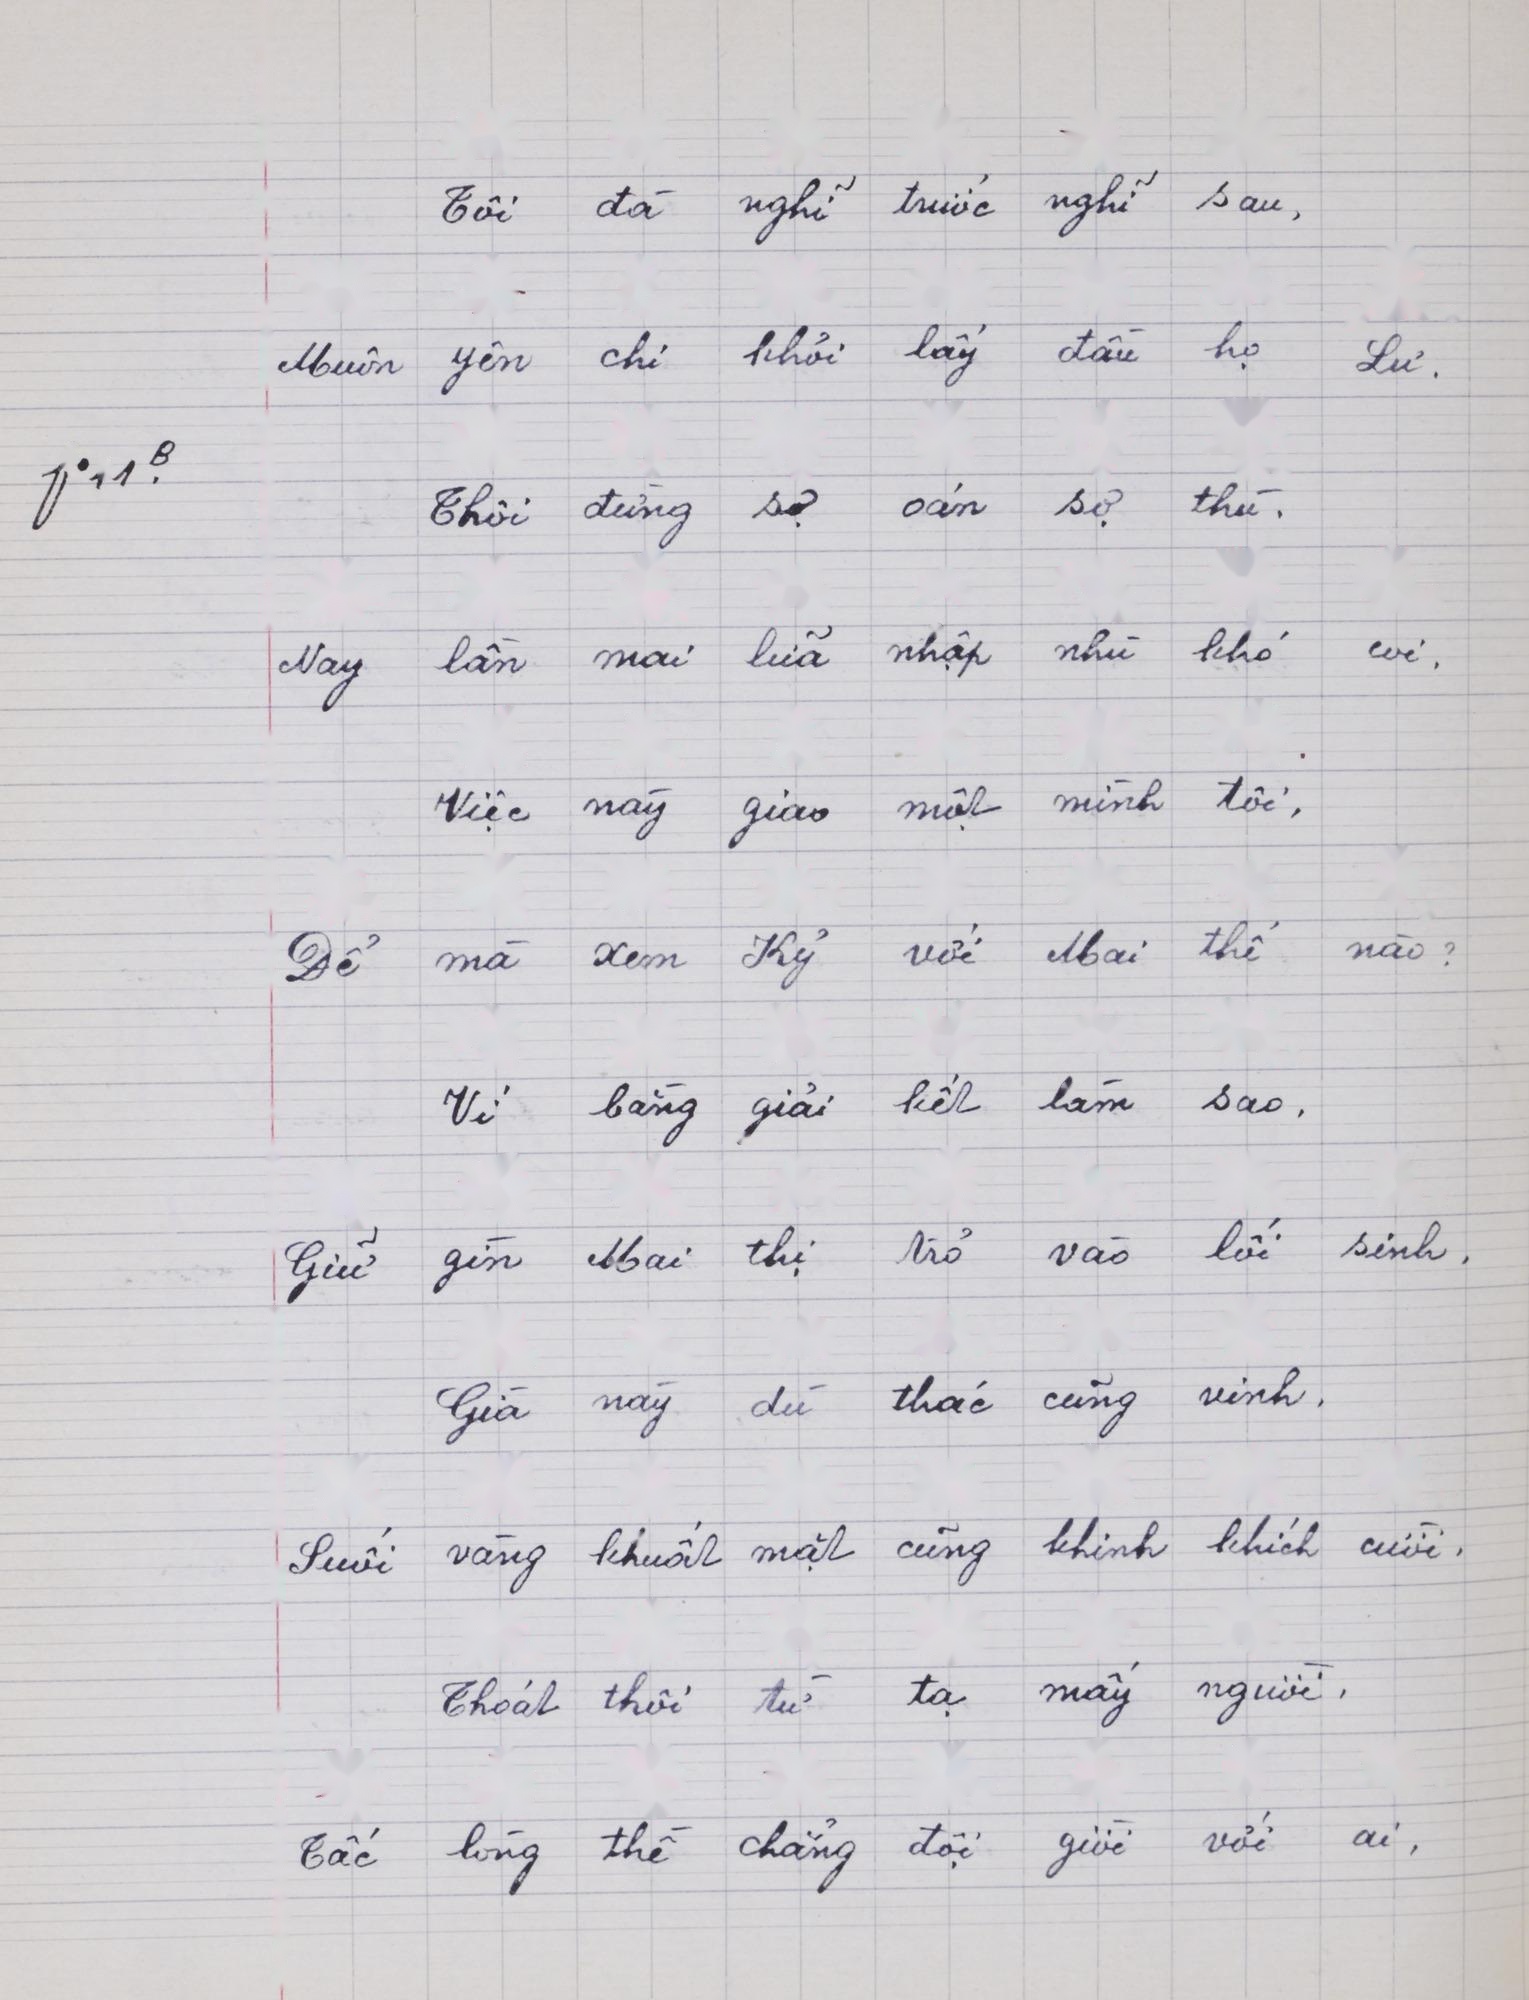 Tôi đà nghĩ trước nghĩ sau,
Muôn yên chi khỏi lấy đầu họ Lư.
fº 11B.
Thôi đừng sợ oán sợ thù.
Nay lần mai lữa nhập nhù khó coi.
Việc này giao một mình tôi,
Để mà xem Kỷ với Mai thế nào?
Ví bằng giải kết làm sao,
Giữ gìn Mai thị trở vào lối sinh.
Già này dù thác cũng vinh.
Suối vàng khuất mặt cũng khinh khích cười.
Thoát thôi từ tạ mấy người,
Tấc lòng thề chẳng đội giời với ai,